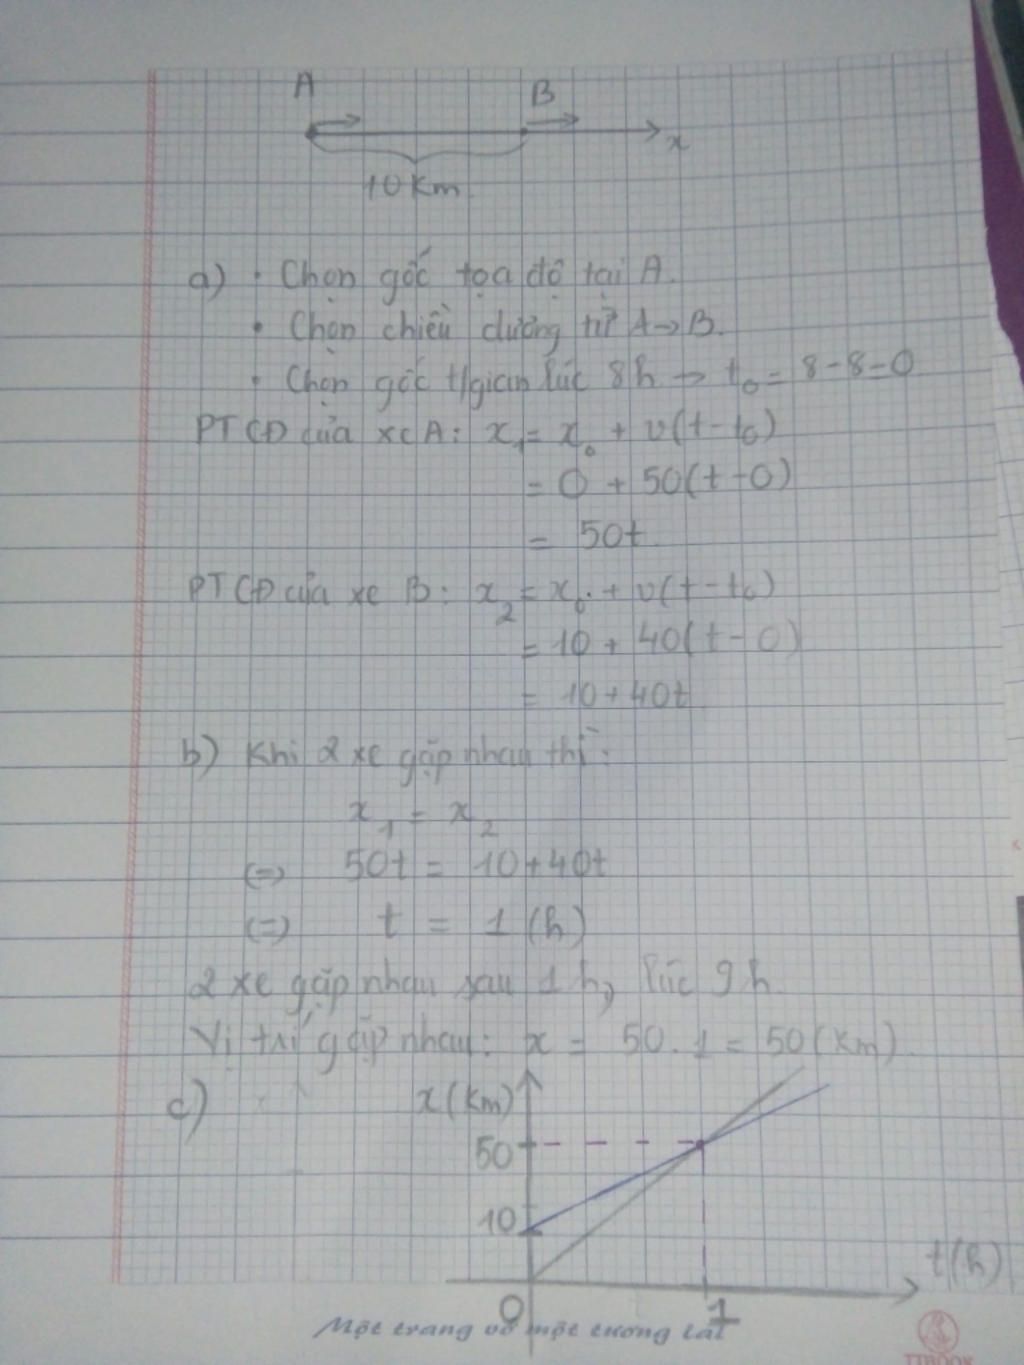 A B
x
10 km
a) • Chọn gốc tọa độ tại A.
• Chọn chiều dương từ A→B.
• Chọn gốc t/gian lúc 8h → t₀ = 8-8=0
PTCĐ của xe A: x₁ = x₀ + v(t-t₀)
= 0 + 50(t-0)
= 50t
PTCĐ của xe B: x₂ = x₀ + v(t-t₀)
= 10 + 40(t-0)
= 10+40t
b) Khi 2 xe gặp nhau thì:
x₁ = x₂
(=) 50t = 10+40t
(=) t = 1 (h)
2 xe gặp nhau sau 1h, lúc 9h
Vị trí gặp nhau: x = 50.1 = 50 (km).
c) x(km)
50
10
t(h)
0 1
Một trang vở một tương lai